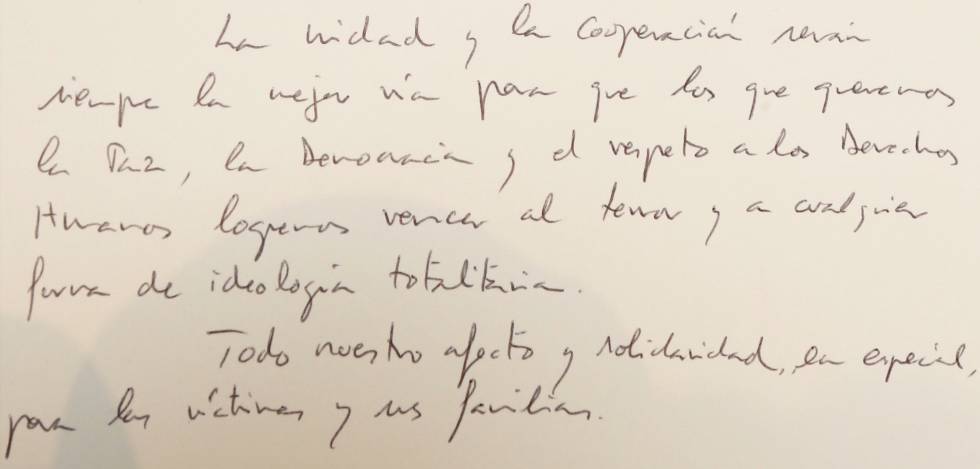 La unidad y la cooperación serán
siempre la mejor vía para que los que queremos
la Paz, la Democracia y el respeto a los Derechos
Humanos logremos vencer al terror y a cualquier
forma de ideología totalitaria.
Todo nuestro afecto y solidaridad, en especial,
para las víctimas y sus familias.